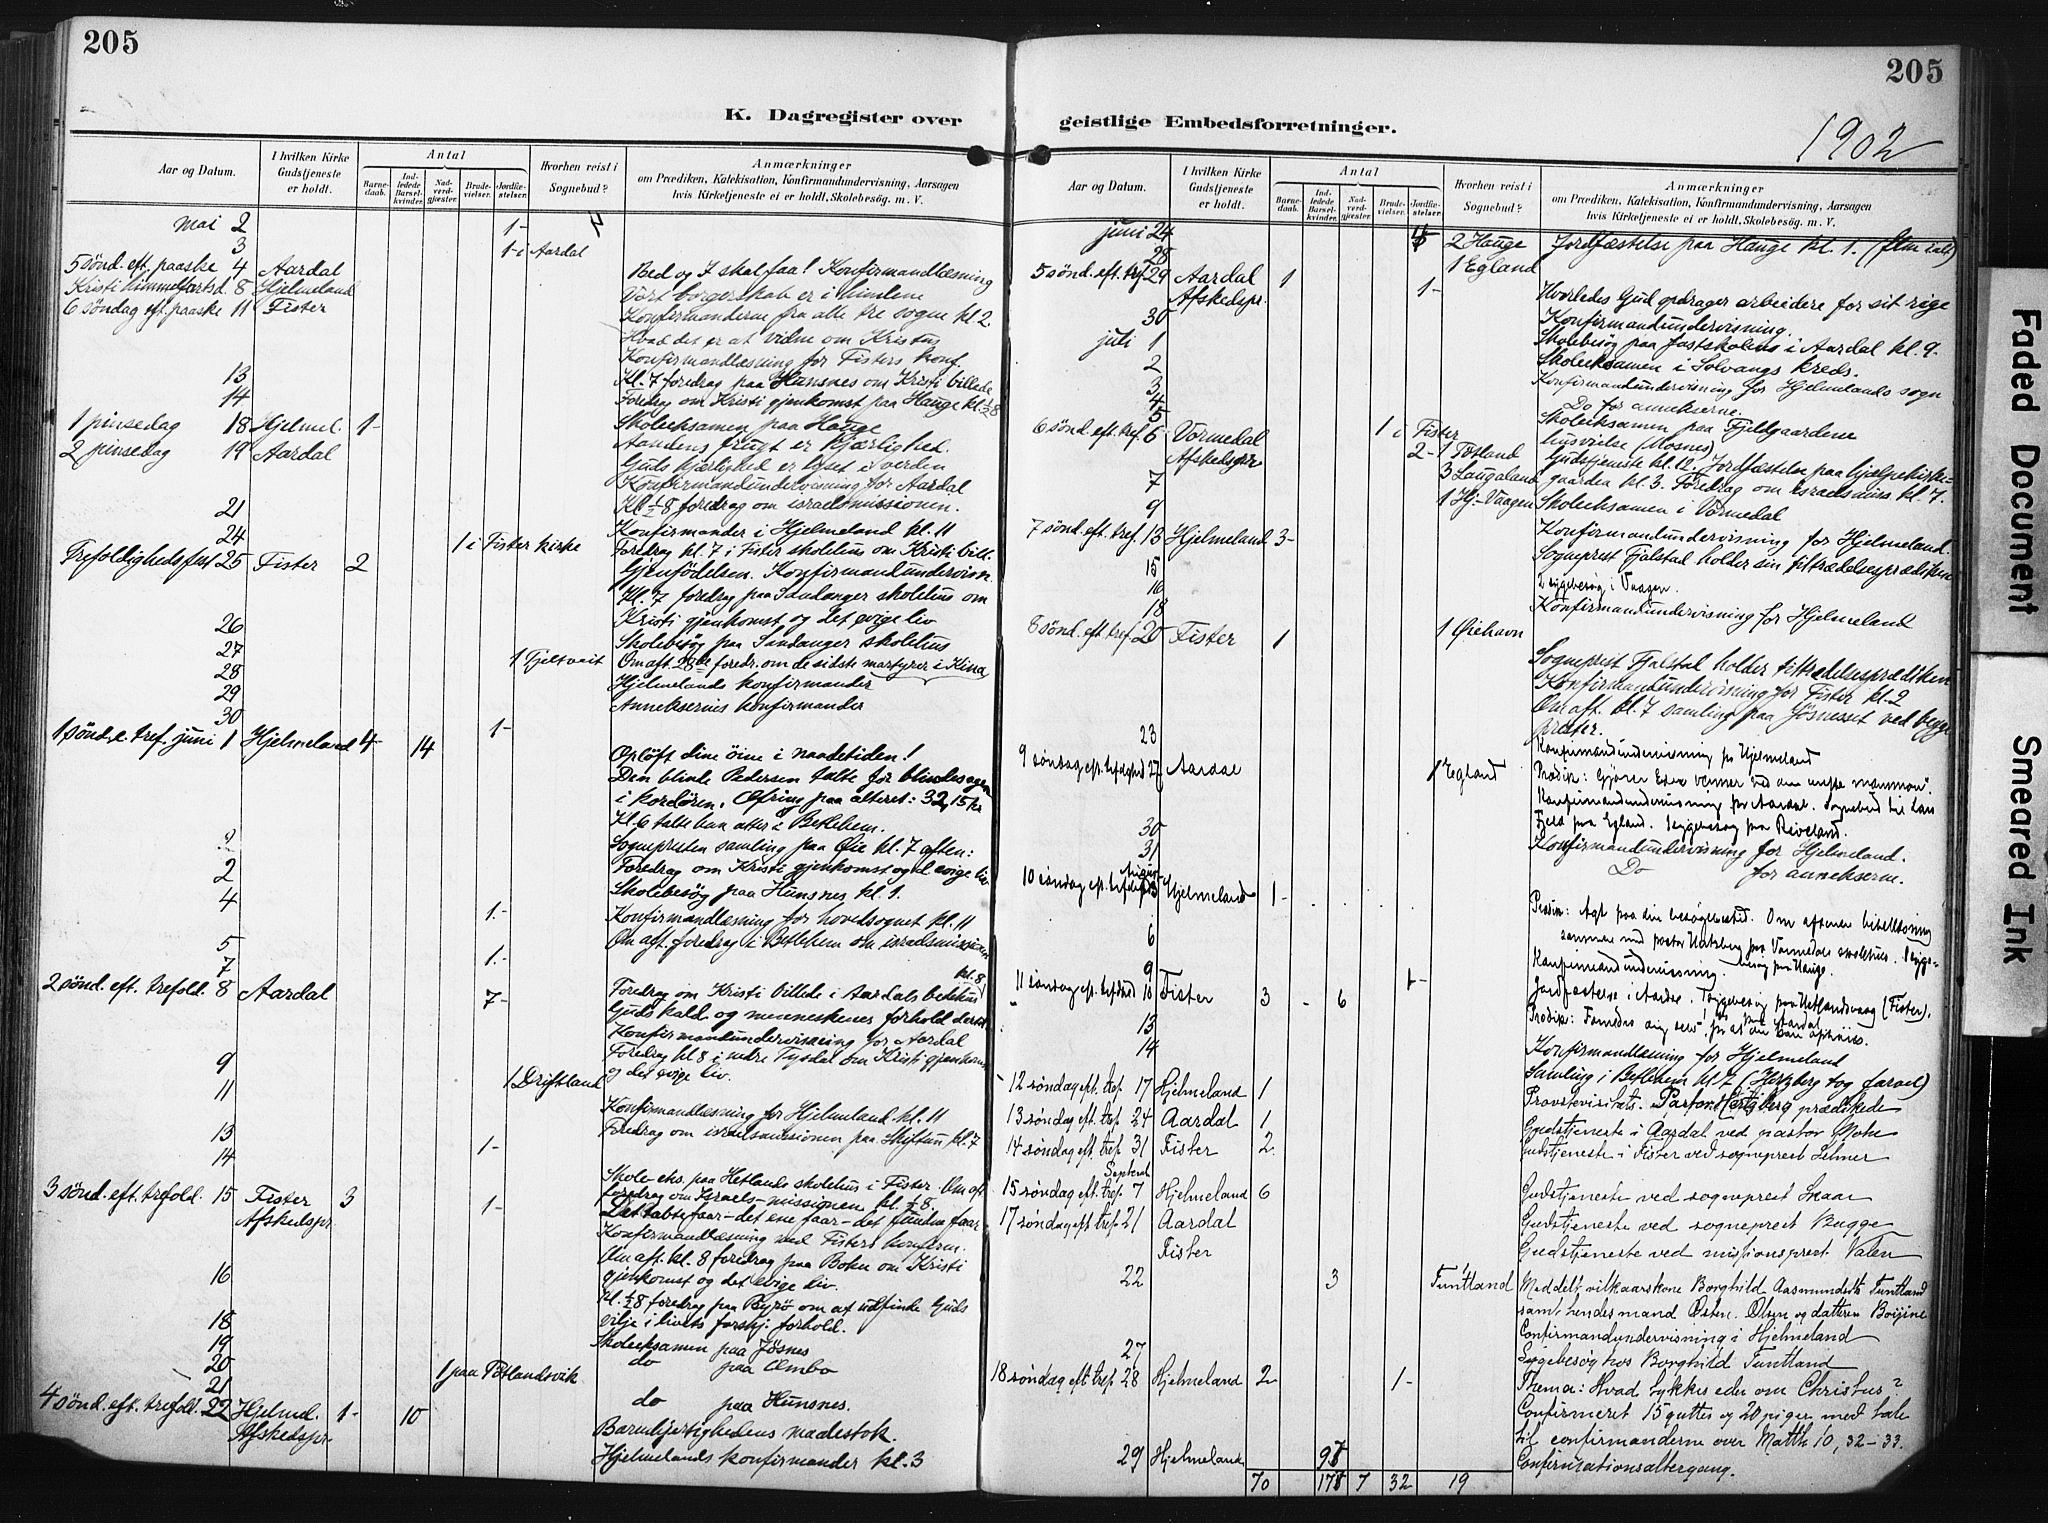 205
K. Dagregister over
Aar og Datum.
I hvilken Kirke Gudstjeneste er holdt.
Antal
Barnedaab.
Indledede Barselkvinder.
Nadverdgjæster.
Brudevielser.
Jordfæstelser.
Hvorhen reist i Sognebud?
Anmærkninger
om Prædiken, Katekisation, Konfirmandundervisning, Aarsagen
hvis Kirketjeneste ei er holdt, Skolebesøg. m. V.
Mai 2 1-
3 1- i Aardal
5 sønd. eft. paaske 4 Aardal Bed og I skal faa! Konfirmandlæsning
Kristi himmelfartsd. 8 Hjelmeland Vort borgerskab er i himlene
6 søndag eft. paaske 11 Fister Konfirmanderne fra alle tre sogne kl. 2.
Hvad det er at vidne om Kristus
Konfirmandlæsning for Fisters konf.
13 Kl. 7 foredrag paa Hunsnes om Kristi billede
14 Foredrag om Kristi gjenkomst paa Hauge kl. ½8
Skoleeksamen paa Hauge
1 pinsedag 18 Hjelmel. 1- Aandens frugt er kjærlighed.
2 pinsedag 19 Aardal Guds kjærlighed er lyset i verden
Konfirmandundervisning for Aardal
Kl. ½8 foredrag om israelsmissionen.
21 Konfirmander i Hjelmeland kl. 11
24 1 i Fister kirke Foredrag kl. 7 i Fister skolehus om Kristi bill.
Trefoldighedsfest 25 Fister 2 Gjenfødelsen. Konfirmandundervisn.
Kl. 7 foredrag paa Sandanger skolehus om
Kristi gjenkomst og det evige liv
26 Skolebesøg paa Sandanger skolehus
27 1 Fjeltveit Om aft. 28de foredr. om de sidste martyrer i Kina
28 Hjelmelands konfirmander
29 Anneksernes konfirmander
30 1-
1 sønd. e. tref. juni 1 Hjelmeland 4- 14 Opløft dine øine i naadetiden!
Den blinde Pedersen talte for blindesagen
i kordøren. Ofring paa alteret: 32,15 kr
Kl. 6 talte han atter i Betlehem.
Sognepresten samling paa Øie kl. 7 aften:
2 Foredrag om Kristi gjenkomst og d. evige liv
Skolebesøg paa Hunsnes kl. 1.
4 1.- Konfirmandlæsning for hovedsognet kl. 11
Om aft. foredrag i Betlehem om israelsmissionen
5 1.- kl. 8
7 Foredrag om Kristi billede i Aardals bedehus
2 sønd. eft. trefold. 8 Aardal 7- Guds kald og menneskenes forhold dertil
Konfirmandundervisning for Aardal
9 Foredrag kl 8 i nedre Tysdal om Kristi gjenkomst
og det evige liv.
11 1 Driftland Konfirmandlæsning for Hjelmeland kl. 11
13 Foredrag om israelsmissionen paa Skiftun kl. 7
14 1-
Skole-eks. paa Hetlands skolehus i Fister. Om aft.
3 sønd. eft. trefold. 15 Fister 3 1- foredrag om Israels-missionen kl. ½8.
Afskedspr. Det tabte faar - det ene faar - det fundne faar
Konfirmandlæsning med Fisters konfirm.
Om aft. kl. 8 foredrag paa Bokn om Kristi
16 gjenkomst og det evige liv.
Kl. ½8 foredrag paa Byrø om at udfinde Guds
18 vilje i livets forskj. forhold.
19 Skoleeksamen paa Jøsnes
20 do paa Ombo
21 1 paa Tøtlandsvik do paa Hunsnes.
4 sønd. eft. trefold. 22 Hjelmel. 1- 10 Barmhjertighedens maalestok.
Afskedspr. Hjelmelands konfirmander kl. 3
205
geistlige Embedsforretninger.
1902
Aar og Datum.
I hvilken Kirke Gudstjeneste er holdt.
Antal
Barnedaab.
Indledede Barselkvinder.
Nadverdgjæster.
Brudevielser.
Jordfæstelser.
Hvorhen reist i Sognebud?
Anmærkninger
om Prædiken, Katekisation, Konfirmandundervisning, Aarsagen
hvis Kirketjeneste ei er holdt, Skolebesøg. m. V.
juni 24 2 Hauge Jordfæstelse paa Hauge kl. 1. (fem ialt)
28 1 Egland
5 sønd. eft. tref. 29 Aardal 1 1- Hvorledes Gud opdrager arbeidere for sit rige
Afskedspr. Konfirmandundervisning.
30 Skolebesøg paa fastskolens i Aardal kl. 9.
juli 1 Skoleeksamen i Solvangs kreds.
2 Konfirmandundervisning for Hjelmelands sogn
3 Do for annekserne.
4 Skoleeksamen paa Fjellgaardene
5 husvielse (Mosnes)
6 sønd. eft. tref. 6 Vormedal 1 i Fister Gudstjeneste kl. 12. Jordfæstelse paa hjælpekirke-
Afskedspr 2- 1 Tøtland gaarden kl. 3. Foredrag om israelsmiss. kl. 7.
7 3 Laugaland
9 1 Hj.-Vaagen Skoleeksamen i Vormedal
Konfirmandundervisning for Hjelmeland.
7 sønd. eft. tref. 13 Hjelmeland 3- Sogneprest Fjalstad holder sin tiltrædelsesprædiken
15 2 sygebesøg i Vaagen.
16 Konfirmandundervisning for Hjelmeland
18
8 sønd. eft. tref. 20 Fister 1 1 Øiehavn Sogneprest Fjalstad holder tiltrædelsesprædiken
Konfirmandundervisning for Fister kl. 2
Om aft. kl. 7 samling paa Jøsneset ved begge
prester.
23 Konfirmandundervisning for Hjelmeland
9 søndag eft. trefoldighed 27 Aardal 1 Egland Prædik: Gjører Eder venner ved den urette mammon".
Konfirmandundervisning for Aardal. Sognebud til Lars
Fjeld paa Egland. Sygebesøg paa Riveland.
30 Konfirmandundervisning for Hjelmeland.
31 Do for annekserne.
August
10 søndag eft. trefoldighed 3 Hjelmeland 1- Prædik: Agt paa din besøgelsestid. Om aftenen bibellæsning
sammen med pastor Hertzberg paa Vormedals skolehus. 1 syge-
6 Konfirmandundervisning. besøg paa Hauge.
9 1- Jordfæstelse i Aardal. 1 sygebesøg paa Hetlandsvaag (Fister).
11 søndag eft. trefold 10 Fister 3 - 6 Prædik: Fornedre dig selv, for at du kan ophøies.
13 Konfirmandlæsning for Hjelmeland
14 Samling i Betlehem kl. 7 (Hertzberg tog farvel)
12 søndag eft. tref. 17 Hjelmeland 1 Provstevisitats. Pastor Hertzberg prædikede
13 søndag eft. tref. 24 Aardal 1 Gudstjeneste i Aardal ved pastor Mohn
14 søndag eft. tref. 31 Fister 2 Gudstjeneste i Fister ved sogneprest Selmer
Septembr
15 søndag eft. tref. 7 Hjelmeland 6 Gudstjeneste ved sogneprest Skaar
17 søndag eft. tref. 21 Aardal Gudstjeneste ved sogneprest Bugge
Fister Gudstjeneste ved missionsprest Valen
22 3 1 Tuntland Meddelt vilkaarskone Borghild Aasmundsdt. Tuntland
samt hendes mand Østen Olsen og datteren
Confirmandundervisning i Hjelmeland
27 Sygebesøg hos Borghild Tuntland
18 søndag eft. tref. 28 Hjelmeland 2 1- Thema: Hvad tykkes eder om Christus?
Confirmeret 15 gutter og 20 piger med tale
til confirmanderne over Matth 10, 32-33.
29 Hjelmeland Confirmationsaltergang.
70 7 32 19
Faded Document
Smeared Ink